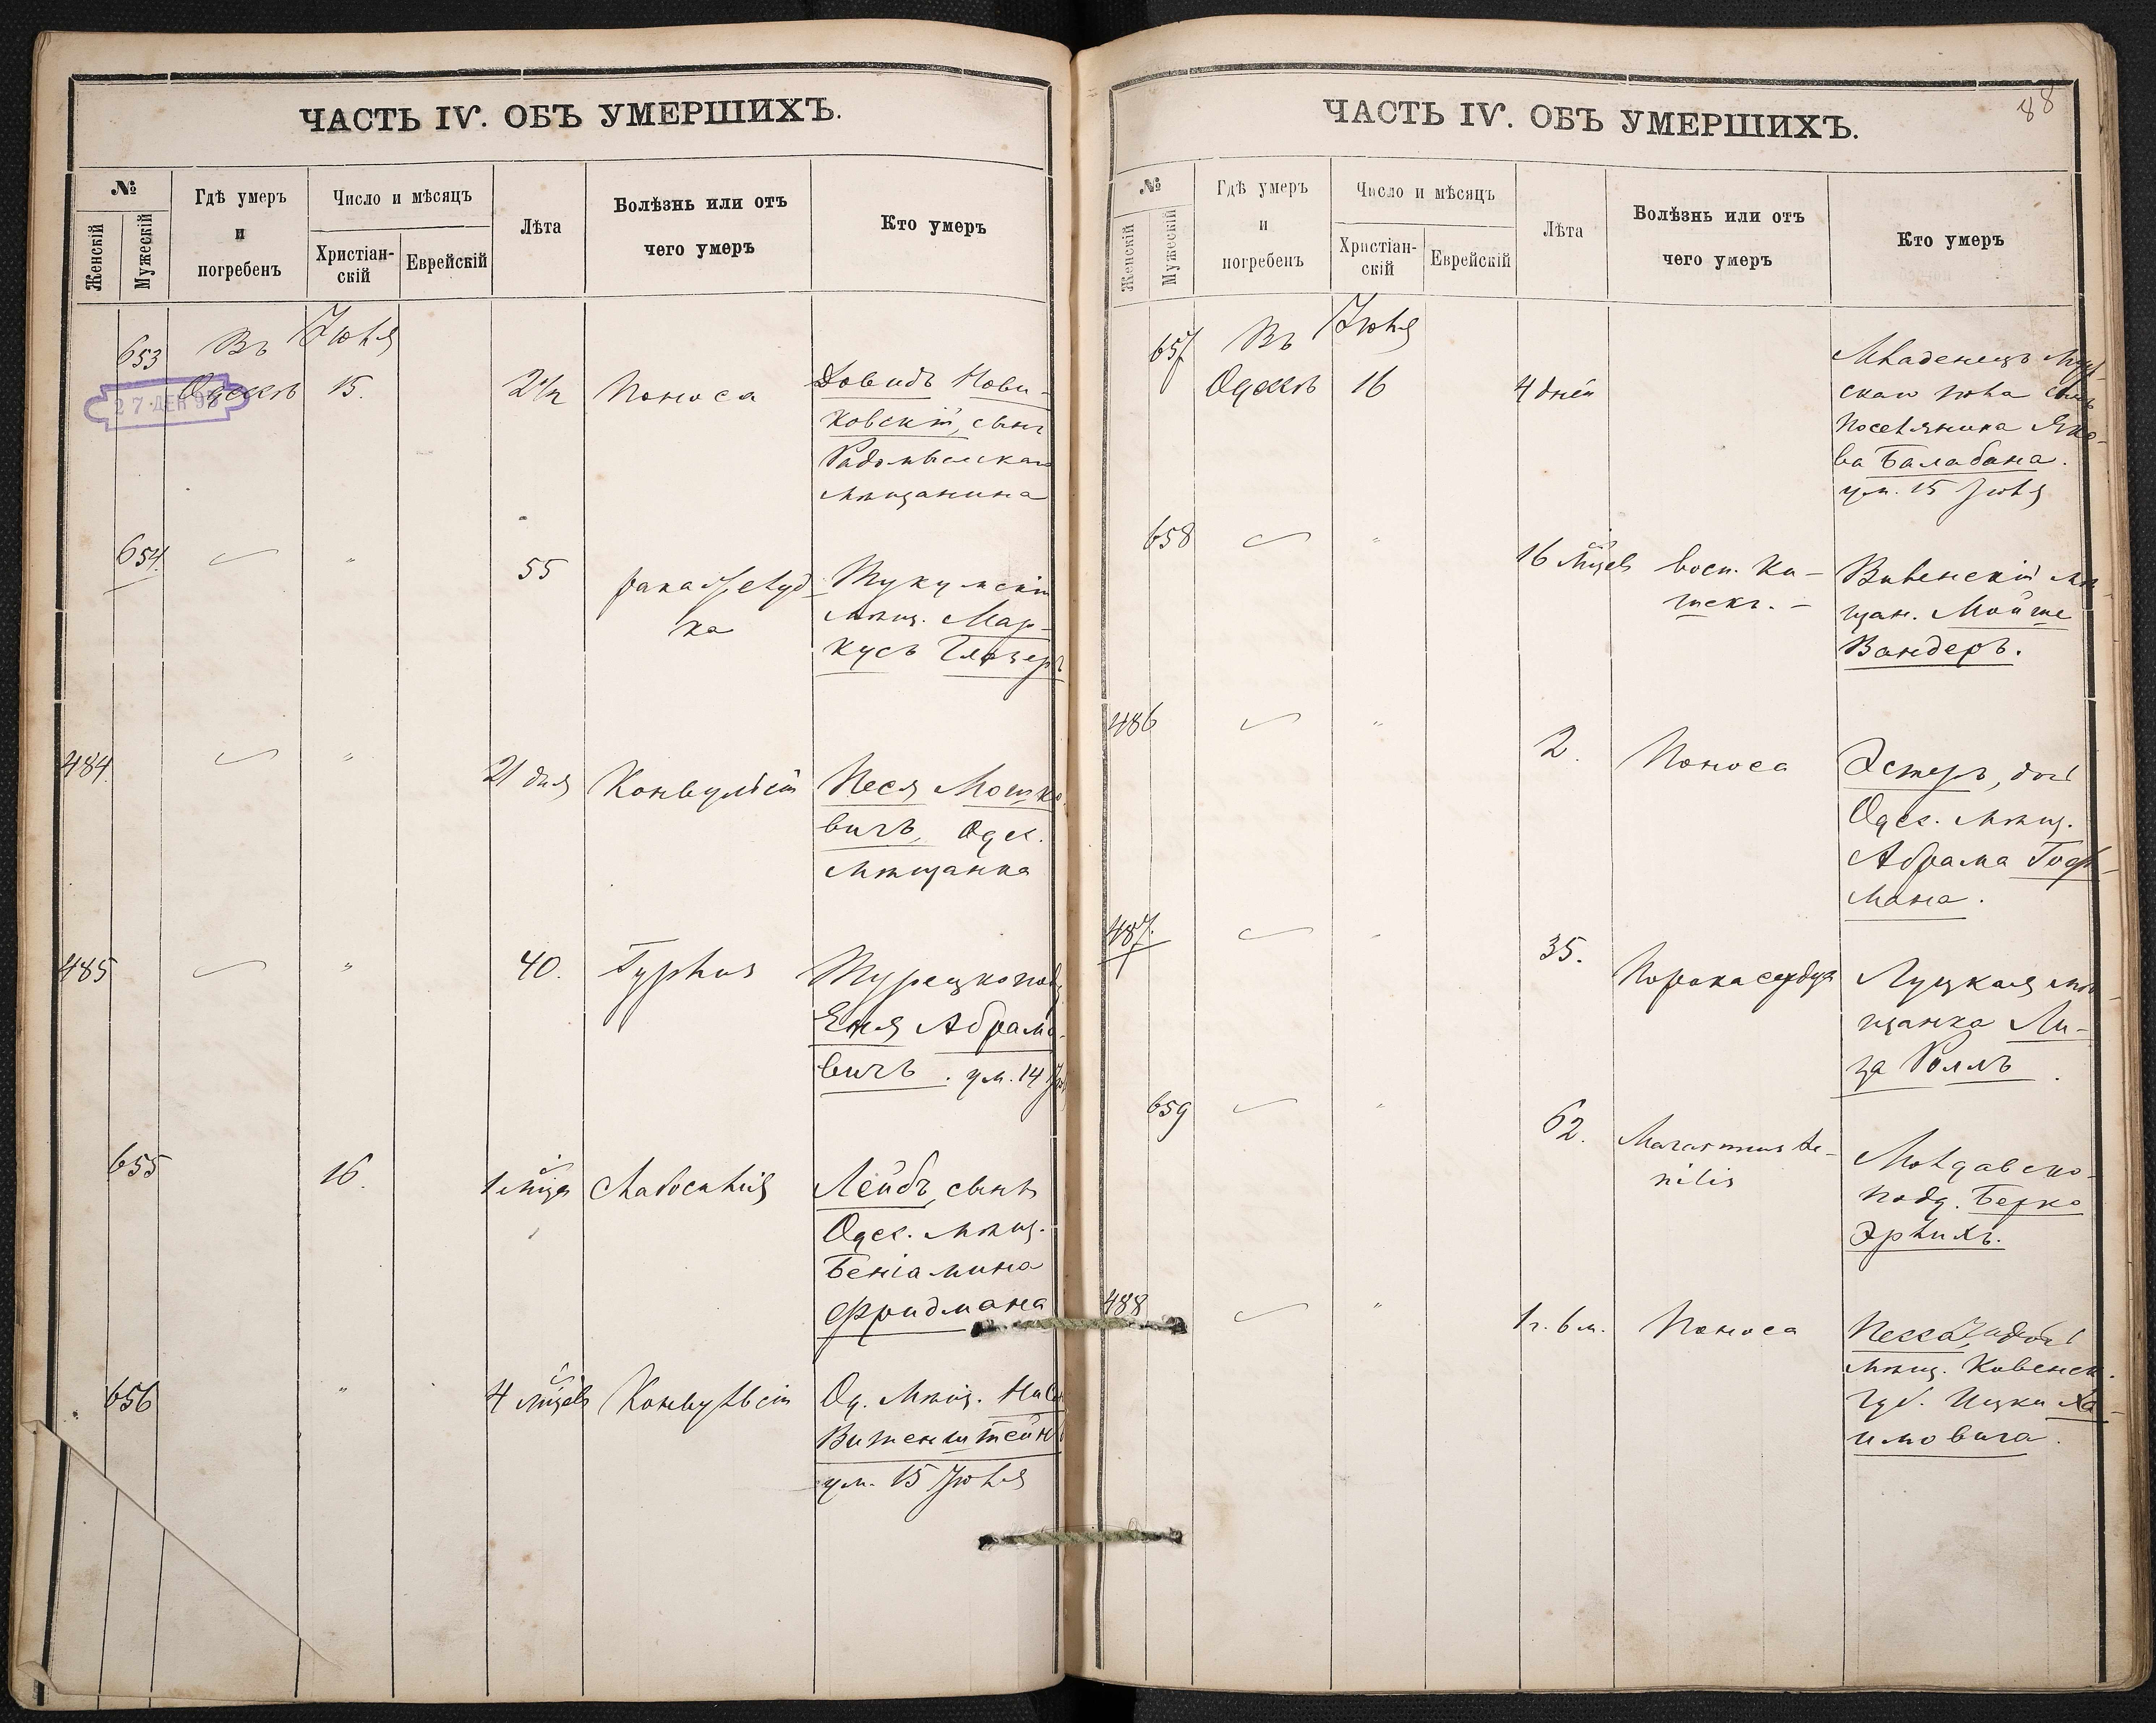 ЧАСТЬ IV. ОБЪ УМЕРШИХЪ.
№
Женскій
Мужескій
Гдѣ умеръ
и
погребенъ
Число и мѣсяцъ
Христіан-
скій
Еврейскій
Лѣта
Болѣзнь или отъ
чего умеръ
Кто умеръ
653 Въ Іюля
Одессѣ 15. 2 1/2 Поноса Довидъ Нови-
27 ДЕК 93
ковскій, сынъ
Радомысльскаго
мѣщанина
654 " 55 рака желуд-
ка
Тукумскій
мѣщ. Мар-
кусъ Глазеръ
484 " 21 дня Конвульсій Песя Мошко-
вичъ, Одес.
мѣщанка
485 " 40. Typhus Турецкопод.
Еня Абрамо-
вичъ. ум. 14 Іюля
655 16. 1 мѣсяц Слабосилія Лейбъ, сынъ
Одес. мѣщ.
Беніамина
Фридмана
656 " 4 мѣсяцевъ Конвульсій Од. мѣщ.
Витенштейнъ
ум. 15 Іюля
ЧАСТЬ IV. ОБЪ УМЕРШИХЪ.
88
№
Женскій
Мужескій
Гдѣ умеръ
и
погребенъ
Число и мѣсяцъ
Христіан-
скій
Еврейскій
Лѣта
Болѣзнь или отъ
чего умеръ
Кто умеръ
657 Въ Іюля
Одессѣ 16 4 дней Младенецъ муж-
скаго пола сынъ
поселянина Яко-
ва Балабана.
ум. 15 Іюля
658 " 16 мѣсяцевъ восп. ки-
шекъ. -
Виленскій мѣ-
щан. Мойше
Вандеръ.
486 " 2. Поноса Эстеръ, дочь
Одес. мѣщ.
Абрама Гоф-
мана.
487. " 35. Порока сердца Луцкая мѣ-
щанка Ли-
за Роллъ.
659 " 62. Marasmus se-
nilis
Молдавско-
подд. Берко
Эрлихъ.
488 " 1 г. 6 м. Поноса Песса дочь
мѣщ. Ковенск.
губ. Ицки Ха-
имовича.